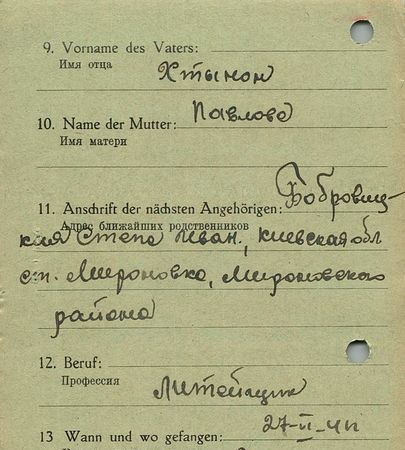 9. Vorname des Vaters:
Имя отца
10. Name der Mutter: Павлова
Имя матери
11. Anschrift der nächsten Angehörigen: Бобровиц-
Адрес ближайших родственников
кия Степа Иван, Киевская обл
ст. Мироновка, Мироновского
района
12. Beruf:
Профессия
13 Wann und wo gefangen: